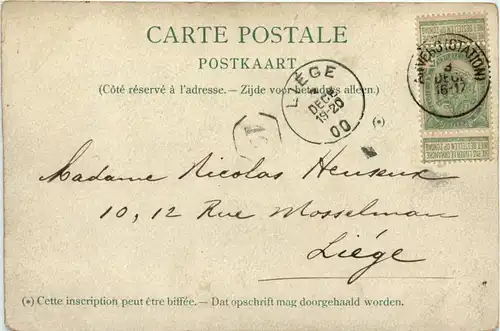 CARTE POSTALE
POSTKAART
(Côté réservé à l'adresse. — Zijde voor het adres alleen.)
LIÉGE
DECE
19-20
00
ANVERS (STATION)
DECE
16-17
NIET BESTELLEN OP ZONDAG
(*)
Madame Nicolas Heuseux
10, 12 Rue Mosselman
Liége
(*) Cette inscription peut être biffée. — Dat opschrift mag doorgehaald worden.